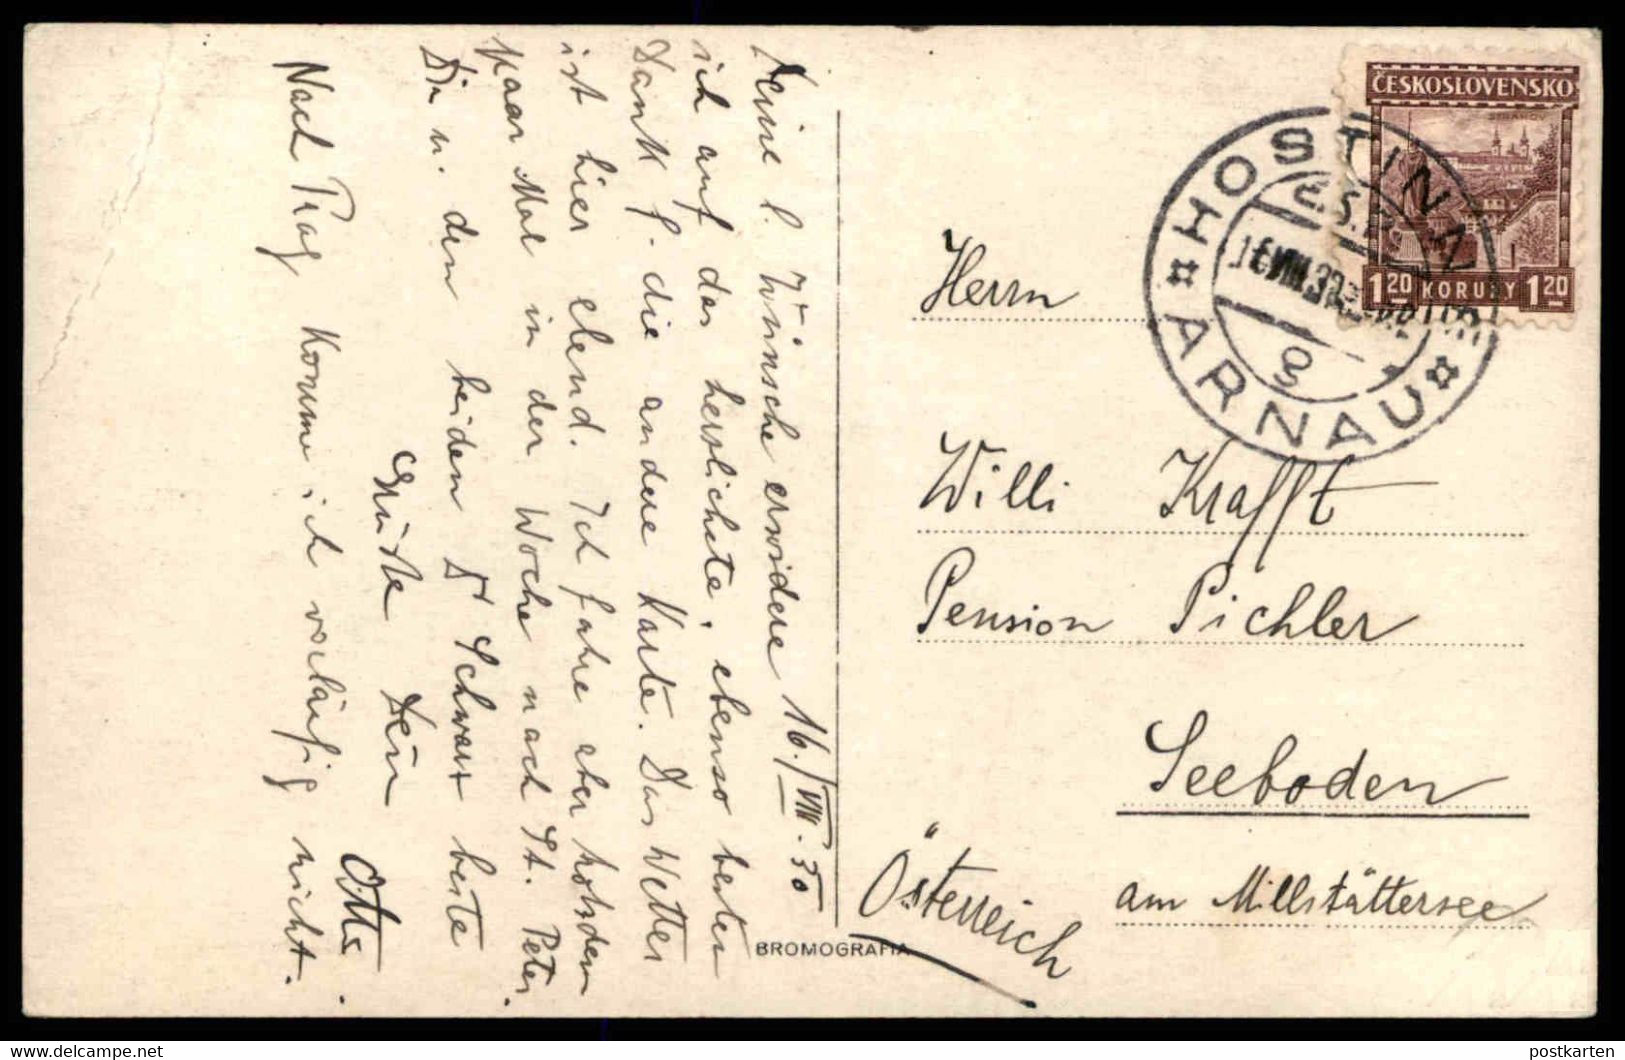 Deine l. Wünsche erwidere 16./VIII. 30
ich auf das herzlichste, ebenso besten
Dank f. die andere Karte. Das Wetter
ist hier elend. Ich fahre aber trotzdem
paar Mal in der Woche nach St. Peter.
Dir u. den beiden Schwarz beste
Grüße Dein Otto.
Nach Prag komme ich vorläufig nicht.
ČESKOSLOVENSKO
STRAHOV
1 20 KORUNY 1 20
HOSTINNÉ
ARNAU
Herrn
Willi Krafft
Pension Pichler
Seeboden
am Millstättersee
Österreich
BROMOGRAFIA
postkarten